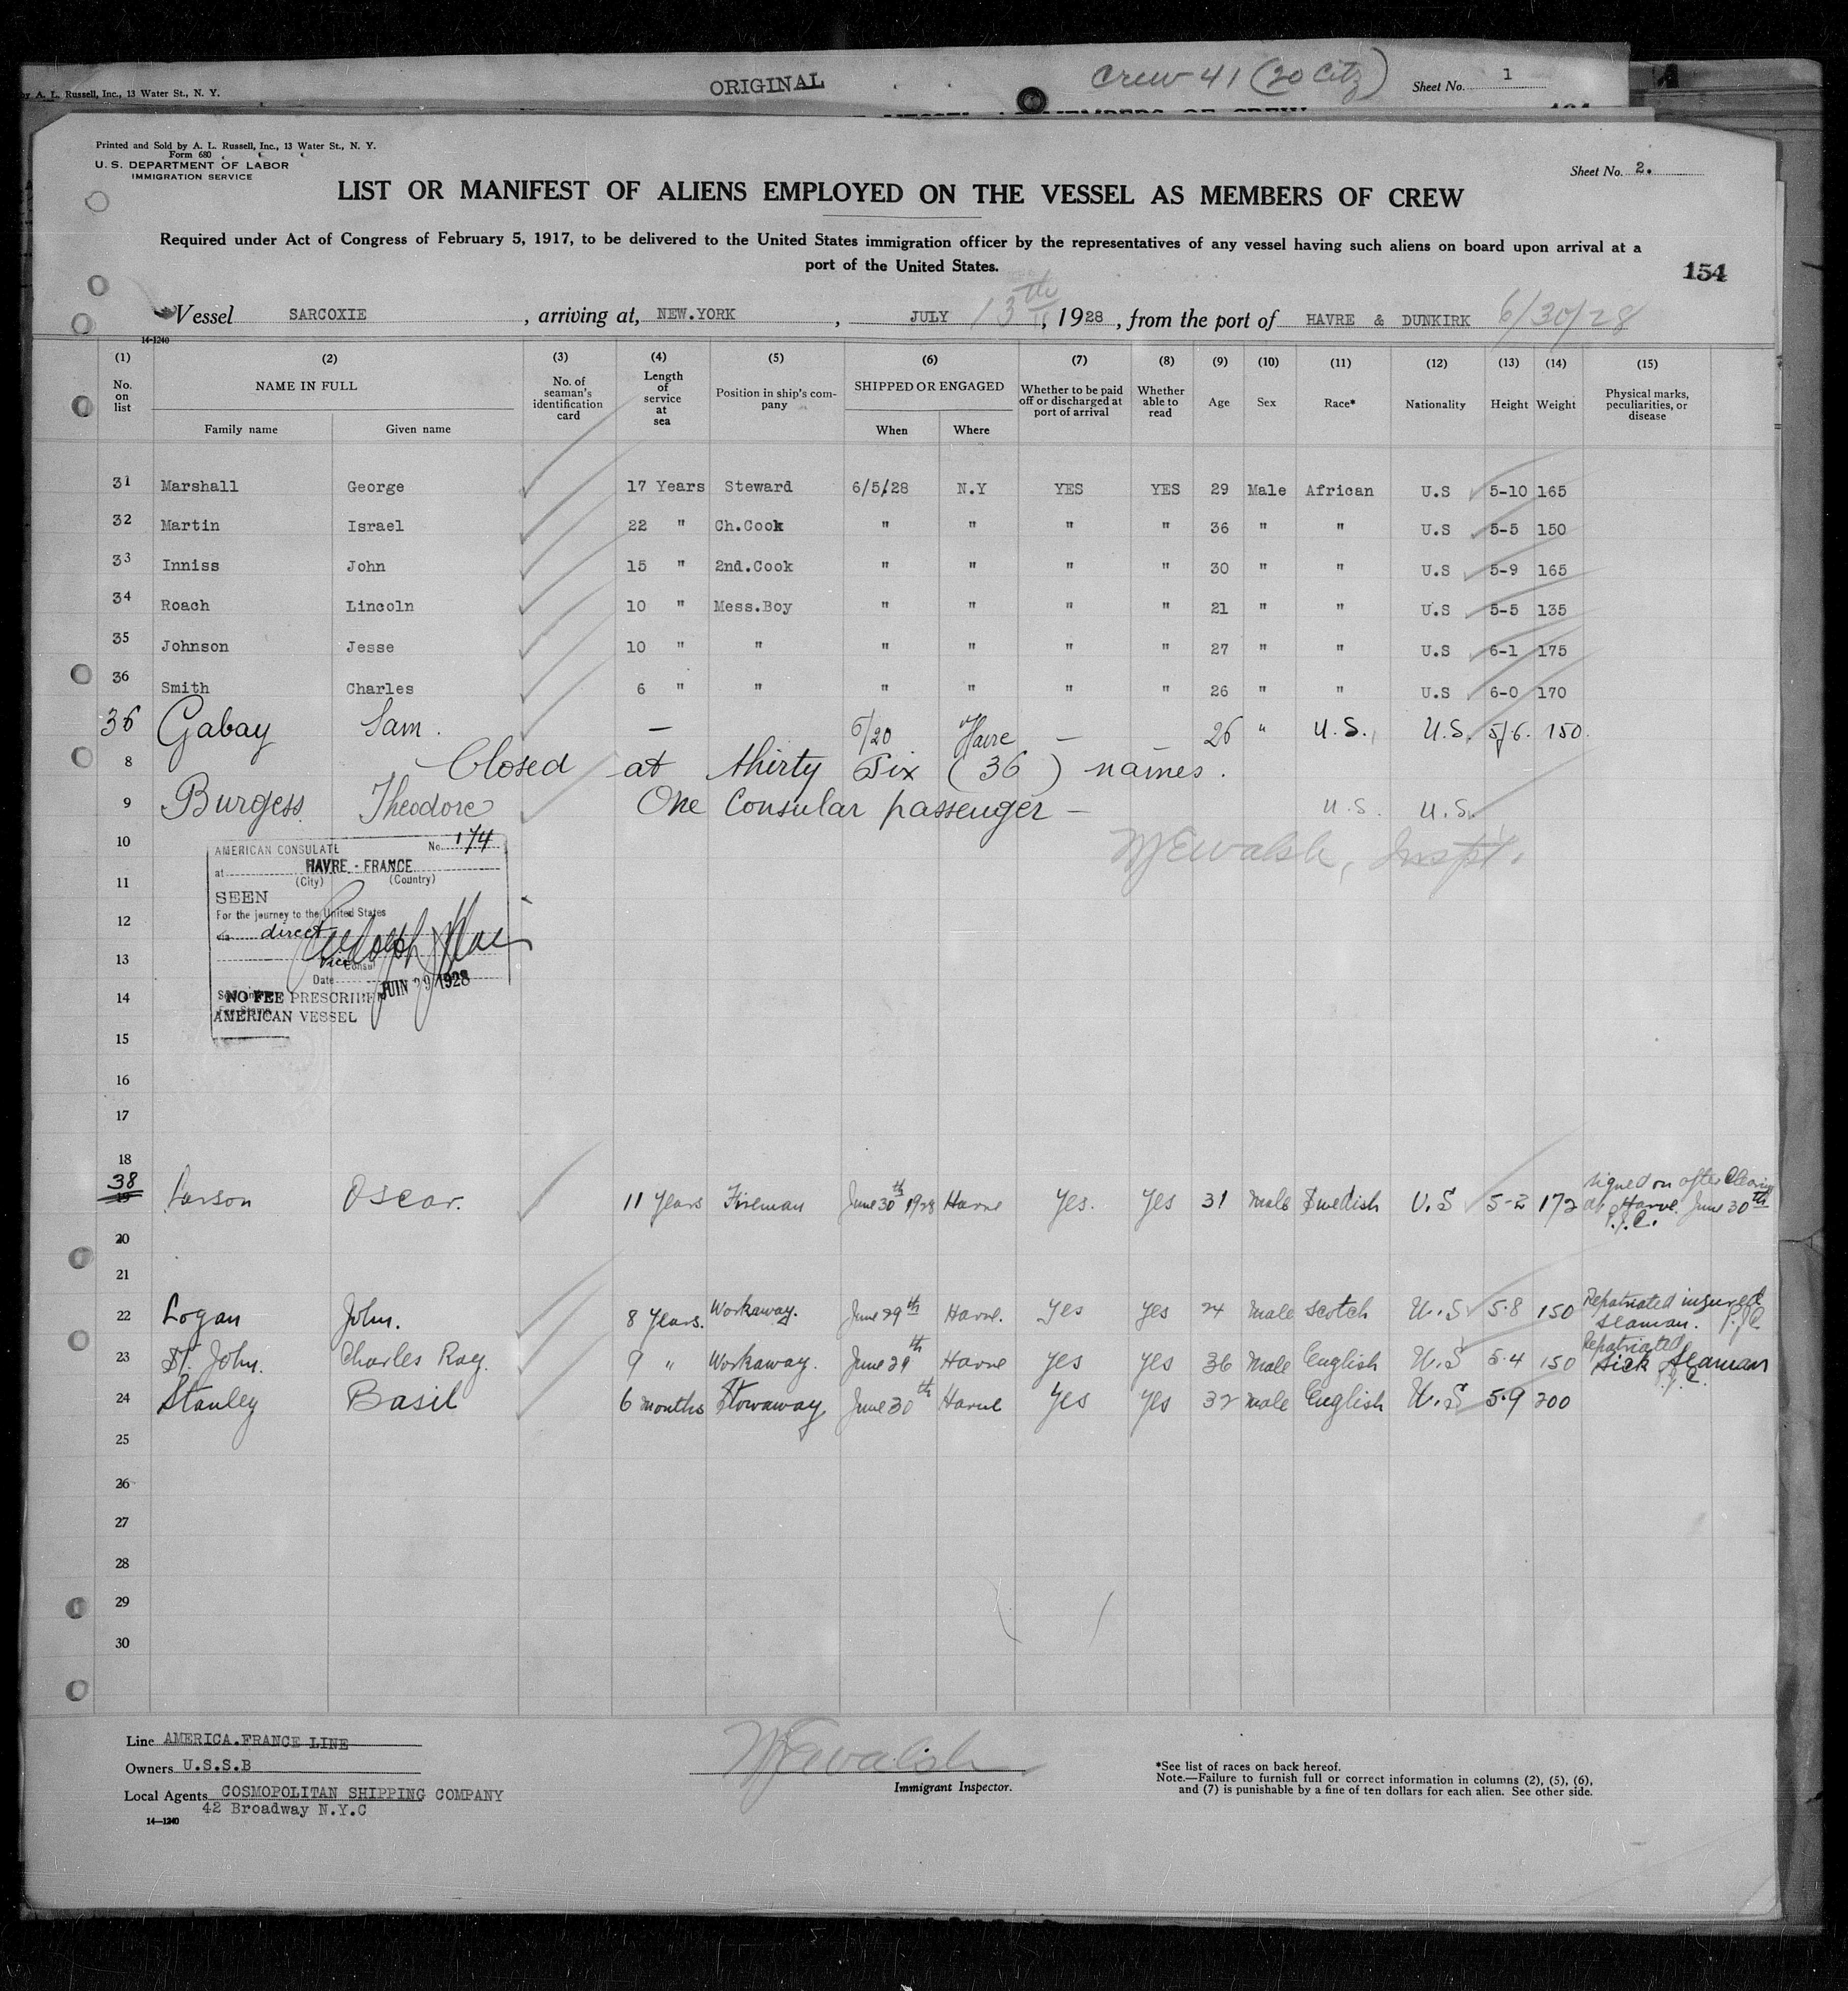 by A. L. Russell, Inc., 13 Water St., N. Y.
ORIGINAL
Crew 41 (20 Citz)
Sheet No. 1
Printed and Sold by A. L. Russell, Inc., 13 Water St., N. Y.
Form 680
U. S. DEPARTMENT OF LABOR
IMMIGRATION SERVICE
Sheet No. 2.
LIST OR MANIFEST OF ALIENS EMPLOYED ON THE VESSEL AS MEMBERS OF CREW
Required under Act of Congress of February 5, 1917, to be delivered to the United States immigration officer by the representatives of any vessel having such aliens on board upon arrival at a
port of the United States.
154
Vessel SARCOXIE, arriving at, NEW.YORK, JULY 13th, 1928, from the port of HAVRE & DUNKIRK 6/30/28
14-1240
(1) (2) (3) (4) (5) (6) (7) (8) (9) (10) (11) (12) (13) (14) (15)
No. on list NAME IN FULL No. of seaman's identification card Length of service at sea Position in ship's company SHIPPED OR ENGAGED Whether to be paid off or discharged at port of arrival Whether able to read Age Sex Race* Nationality Height Weight Physical marks, peculiarities, or disease
Family name Given name When Where
31 Marshall George 17 Years Steward 6/5/28 N.Y YES YES 29 Male African U.S 5-10 165
32 Martin Israel 22 " Ch.Cook " " " " 36 " " U.S 5-5 150
33 Inniss John 15 " 2nd.Cook " " " " 30 " " U.S 5-9 165
34 Roach Lincoln 10 " Mess.Boy " " " " 21 " " U.S 5-5 135
35 Johnson Jesse 10 " " " " " " 27 " " U.S 6-1 175
36 Smith Charles 6 " " " " " " 26 " " U.S 6-0 170
36 Gabay Sam. — 6/20 Havre — — 26 " U.S. U.S. 5/6. 150.
8 Closed at thirty Six (36) names.
9 Burgess Theodore One Consular passenger — U.S. U.S.
10
WJEwalsh, Inspt.
AMERICAN CONSULATE No. 174
at HAVRE - FRANCE
(City) (Country)
11
SEEN
For the journey to the United States
12
via direct
13
Vice Consul
Date JUIN 29 1928
14
NO FEE PRESCRIBED
AMERICAN VESSEL
15
16
17
18
38 19 Larson Oscar. 11 Years Fireman June 30th 1928 Havre Yes. Yes 31 Male Swedish U.S 5-2 172 signed on after Clearing at Havre. June 30th P.J.C.
20
21
22 Logan John. 8 Years. Workaway. June 29th Havre. Yes Yes 24 Male Scotch U.S 5-8 150 Repatriated injured seaman. P.J.C.
23 St. John. Charles Ray. 9 " Workaway. June 29th Havre Yes Yes 36 Male English U.S 5-4 150 Repatriated sick Seaman P.J.C.
24 Stanley Basil 6 months Stowaway June 30th Havre Yes Yes 32 Male English U.S 5-9 200
25
26
27
28
29
30
Line AMERICA.FRANCE LINE
Owners U.S.S.B
Local Agents COSMOPOLITAN SHIPPING COMPANY
42 Broadway N.Y.C
14—1240
WJEwalsh
Immigrant Inspector.
*See list of races on back hereof.
Note.—Failure to furnish full or correct information in columns (2), (5), (6),
and (7) is punishable by a fine of ten dollars for each alien. See other side.